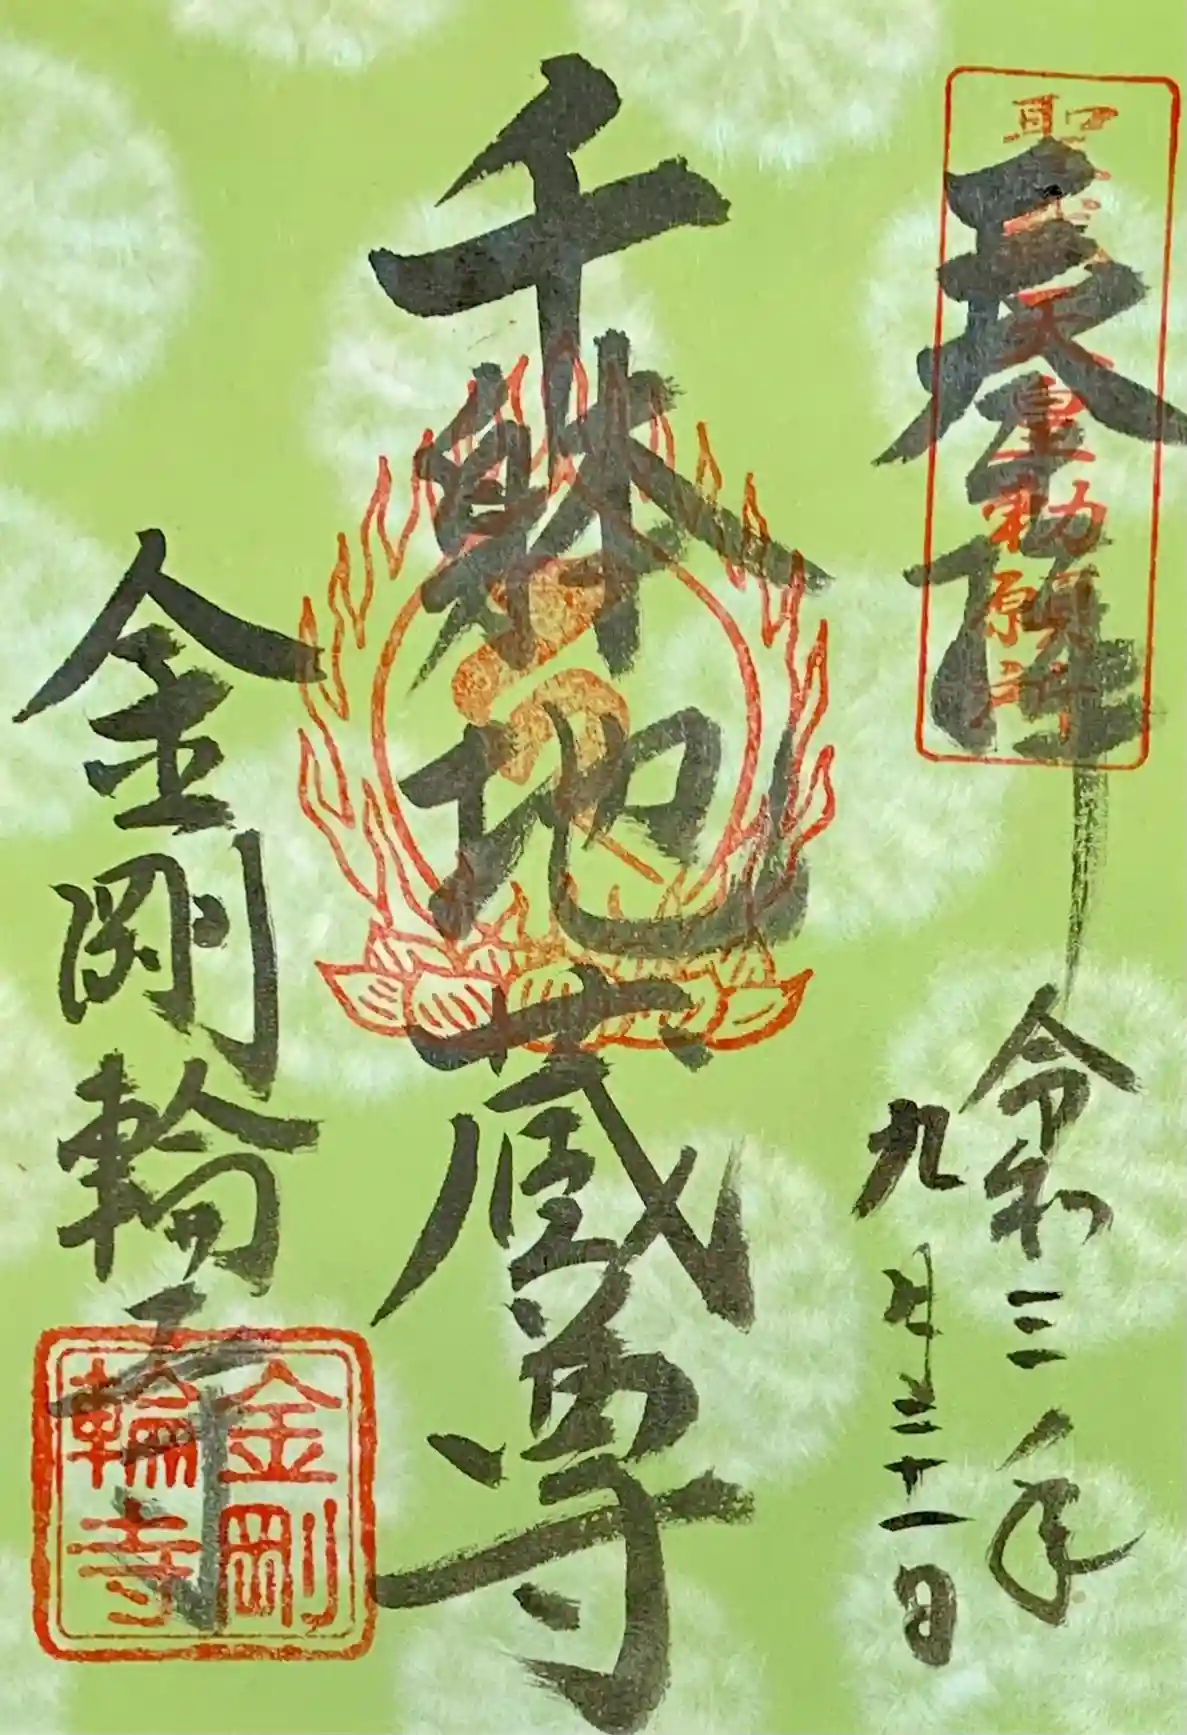 聖武天皇勅願所
令和三年
九月二十一日
千躰地蔵尊
金剛輪寺
金剛
輪寺